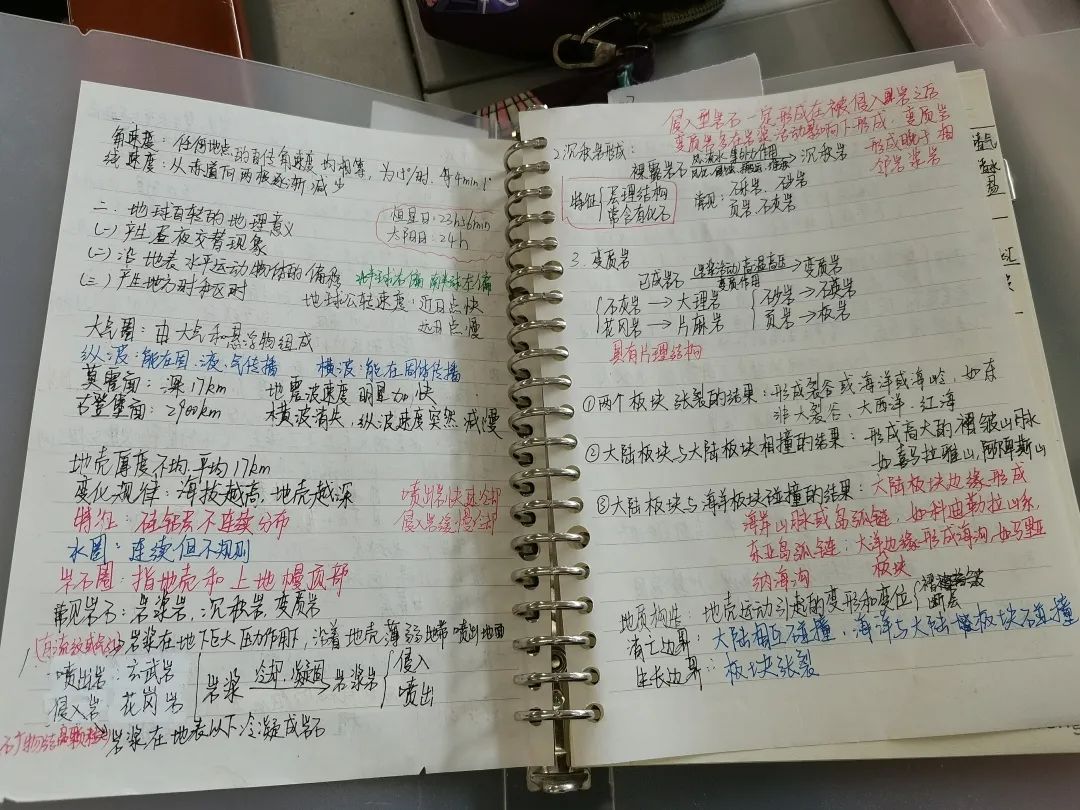 角速度：任何地点的自位角速度均相等，为15°/时，每4min1°
线速度：从赤道向两极逐渐减少
二、地球自转的地理意义
恒星日：23h56min
太阳日：24h
(一)产生昼夜交替现象
(二)沿地表水平运动物体的偏移 北半球右偏 南半球左偏
(三)产生地方时和区时 地球公转速度：近日点快
远日点慢
大气圈：由大气和悬浮物组成
纵波：能在固、液、气传播 横波：能在固体传播
莫霍面：深17km 地震波速度明显加快
古登堡面：2900km 横波消失，纵波速度突然减慢
地壳厚度不均，平均17km
变化规律：海拔越高，地壳越深
特征：硅铝层不连续分布
喷出岩快速冷却
侵入岩缓慢冷却
水圈：连续但不规则
岩石圈：指地壳和上地幔顶部
常见岩石：岩浆岩，沉积岩，变质岩
1. 岩浆在地下巨大压力作用下，沿着地壳薄弱地带喷出地面
喷出岩：玄武岩
侵入岩 花岗岩
岩浆 冷却凝固 岩浆岩 侵入
喷出
岩浆在地表以下冷凝成岩石
侵入型岩石一定形成在被侵入岩之后
变质岩多在岩浆活动影响下形成，变质岩
形成晚于相
邻岩浆岩
2.沉积岩形成：
裸露岩石 沉积岩
特征 层理结构
常含有化石
常见：石灰岩、砂岩
页岩、石灰岩
3. 变质岩
已成岩石 岩浆活动高温高压 变质作用 变质岩
石灰岩→大理岩 砂岩→石英岩
花冈岩→片麻岩 页岩→板岩
具有片理结构
①两个板块张裂的结果：形成裂谷或海洋或海岭，如东
非大裂谷、大西洋、红海
②大陆板块与大陆板块相撞的结果：形成高大的褶皱山脉
如喜马拉雅山，阿卑斯山
③大陆板块与海洋板块碰撞的结果：大陆板块边缘形成
海岸山脉或岛弧链，如科迪勒拉山系，
东亚岛弧链；大洋边缘形成海沟，如马里亚
纳海沟 板块
地质构造：地壳运动引起的变形和变位 褶皱
断层
消亡边界：大陆相互碰撞，海洋与大陆板块碰撞
生长边界：板块张裂